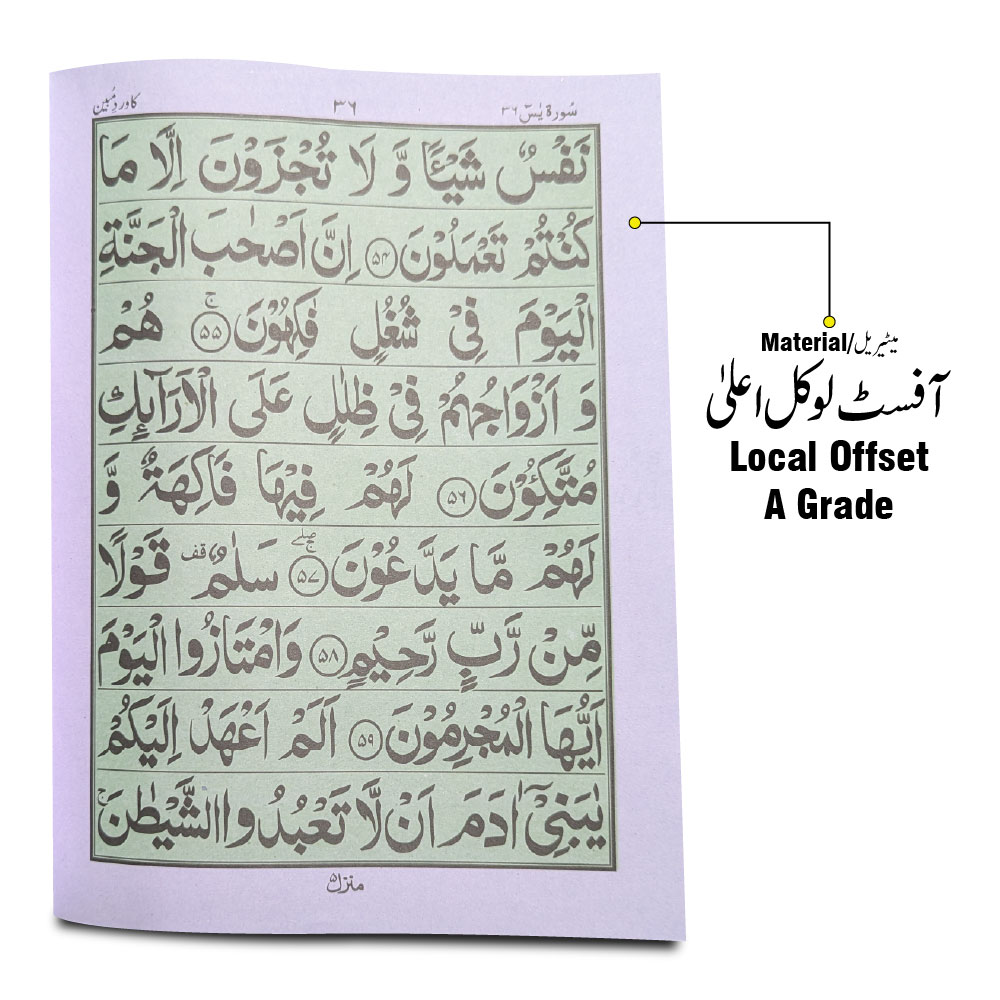 سُورة يٰسٓ ۳۶
۳۶
کا وردِ مُبین
نَفْسٌ شَيْـًٔا وَّ لَا تُجْزَوْنَ اِلَّا مَا
كُنْتُمْ تَعْمَلُوْنَ ۵۴ اِنَّ اَصْحٰبَ الْجَنَّةِ
الْيَوْمَ فِيْ شُغُلٍ فٰكِهُوْنَ ۵۵ ج هُمْ
وَ اَزْوَاجُهُمْ فِيْ ظِلٰلٍ عَلَى الْاَرَآئِكِ
مُتَّكِـُٔوْنَ ۵۶ لَهُمْ فِيْهَا فَاكِهَةٌ وَّ
لَهُمْ مَّا يَدَّعُوْنَ ۵۷ ج صلے سَلٰمٌ قف قَوْلًا
مِّنْ رَّبٍّ رَّحِيْمٍ ۵۸ وَامْتَازُوا الْيَوْمَ
اَيُّهَا الْمُجْرِمُوْنَ ۵۹ اَلَمْ اَعْهَدْ اِلَيْكُمْ
يٰبَنِيْٓ اٰدَمَ اَنْ لَّا تَعْبُدُوا الشَّيْطٰنَ ج
منزل ۵
Material/میٹیریل
آفسٹ لوکل اعلیٰ
Local Offset
A Grade